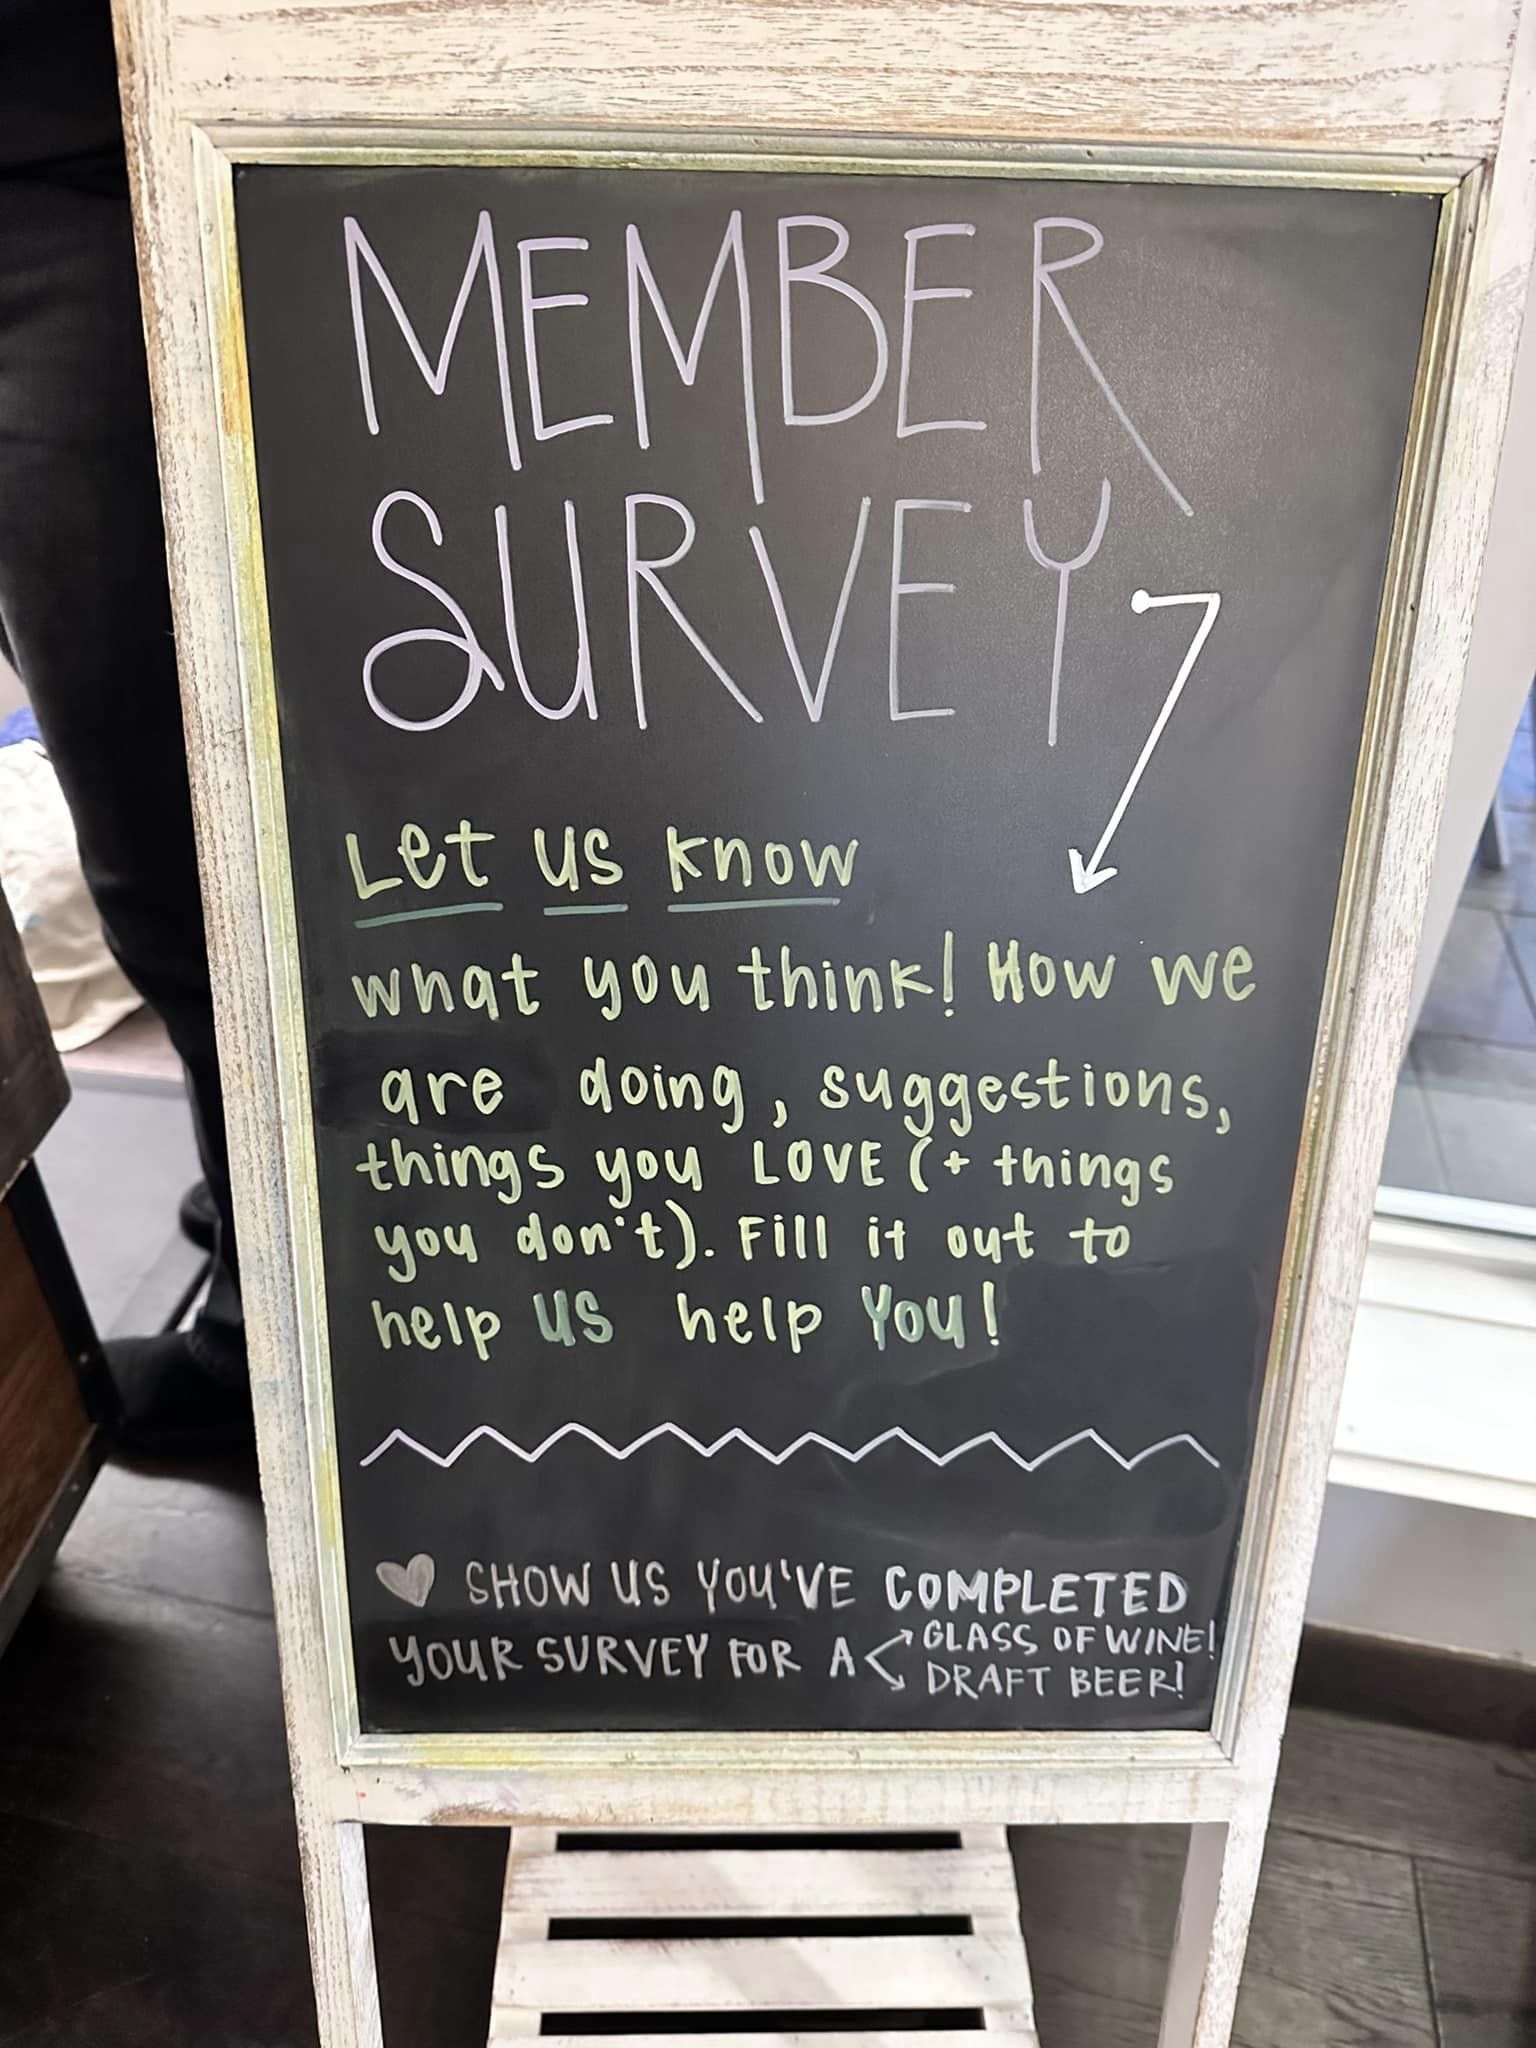 MEMBER
SURVEY
Let us know
what you think! How we
are doing, suggestions,
things you LOVE (+ things
you don't). Fill it out to
help US help YOU!
SHOW US YOU'VE COMPLETED
YOUR SURVEY FOR A
GLASS OF WINE!
DRAFT BEER!